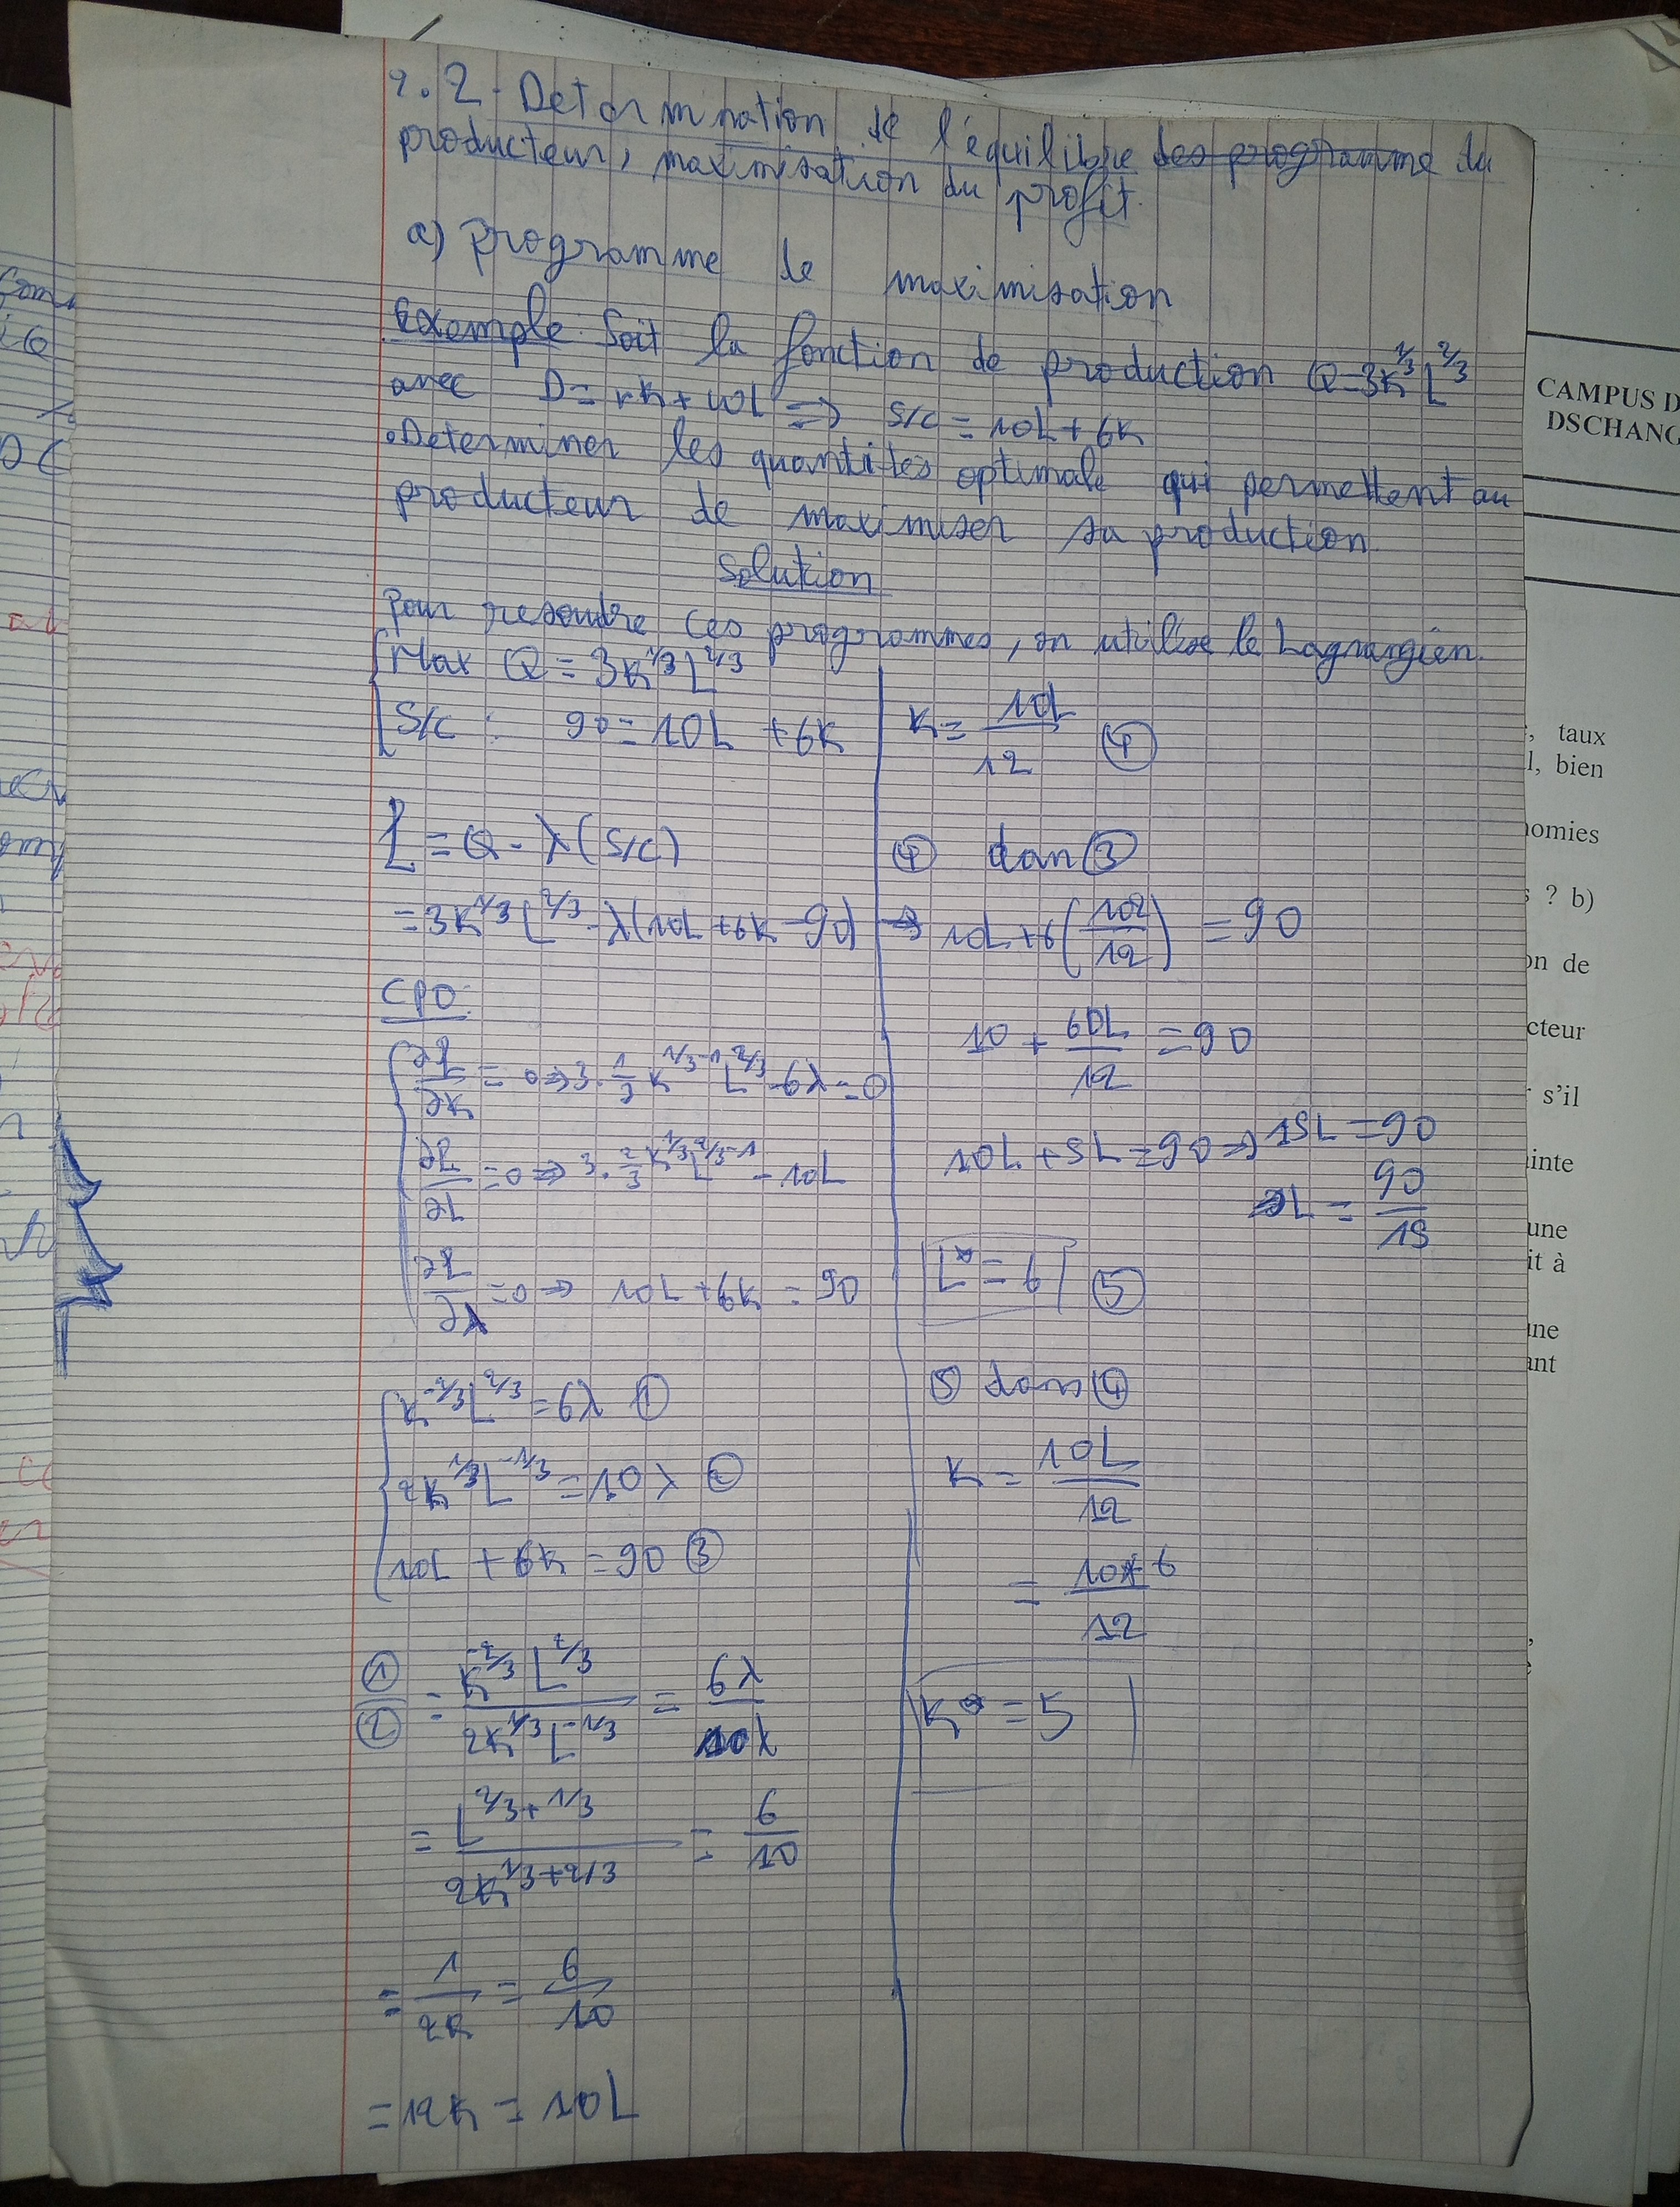 2.2 - Determination de l'équilibre des programme du
producteur, maximisation du profit.
a) programme de maximisation
Exemple: Soit la fonction de production Q=3K^1/3 L^2/3
avec D=rK+wL => S/C = 10L+6K
.Determiner les quantités optimale qui permettent au
producteur de maximiser sa production.
Solution
Pour resoudre ces programmes, on utilise le Lagrangien.
{ Max Q = 3K^1/3 L^2/3
S/C : 90=10L +6K
£ = Q - λ(S/C)
= 3K^1/3 L^2/3 - λ(10L+6K-90)
CPO:
∂£/∂K = 0 => 3.1/3 K^1/3-1 L^2/3 - 6λ = 0
∂£/∂L = 0 => 3.2/3 K^1/3 L^2/3-1 - 10L
∂£/∂λ = 0 => 10L+6K = 90
{ K^-2/3 L^2/3 = 6λ ①
2K^1/3 L^-1/3 = 10λ ②
10L + 6K = 90 ③
①/② = K^-2/3 L^2/3 / 2K^1/3 L^-1/3 = 6λ/10λ
= L^2/3+1/3 / 2K^1/3+2/3 = 6/10
= 1/2K = 6/10
= 12K = 10L
K = 10L/12 ④
④ dan ③
-> 10L+6(10L/12) = 90
10 + 60L/12 = 90
10L + 5L = 90 => 15L = 90
L = 90/15
L* = 6 ⑤
⑤ dans ④
K = 10L/12
= 10*6/12
K* = 5
CAMPUS D
DSCHANG
, taux
l, bien
nomies
? b)
on de
cteur
s'il
inte
une
it à
ine
ant